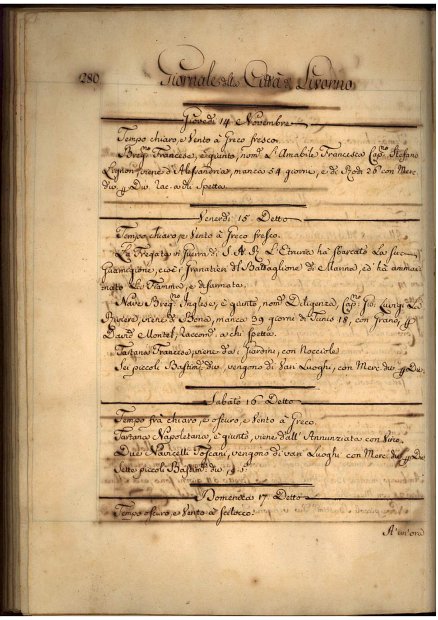 280. Giornale della Città di Livorno
Giovedì 14 Novembre
Tempo chiaro, e Vento à Greco fresco.
Brig.no Francese, è giunto, nom.o L'Amabile Francesca Cap.no Stefano
viene d'Alessandria, manca 54 giorni, e di Rodi 26 con Merc.
div. p Div. Rac. a di Spetta.
Venerdì 15 Detto
Tempo chiaro, e Vento à Greco fresco.
La Fregata in Guerra di S. A. R. L'Etruria hà sbarcato la sua
Guarnigione, cioè i Granatieri del Battaglione di Marina, ed hà ammai-
nato la Fiamma, e disarmata.
Nave Brig.no Inglese, è giunto nom.o Deligenza, Cap.no Gio. Luigi La
Riviere, viene da Bona, manca 39 giorni, di Tunis 18, con Grano, p
David Montel, Raccom. a chi spetta.
Tartana Francese, viene da i Giardini, con Nocciole
Sei piccoli Bastim. div. vengono di Vari Luoghi, con Merc. div. p Div.
Sabato 16 Detto
Tempo frà chiaro, e oscuro, e Vento à Greco.
Tartana Napoletana, è giunta, viene dall'Annunziata con
Due Navicelli Toscani, vengono di vari Luoghi con Merc. div. p Div.
Sette piccoli Bastim. div.
Domenica 17 Detto
Tempo oscuro, e Vento à Scilocco.
A' un'ora